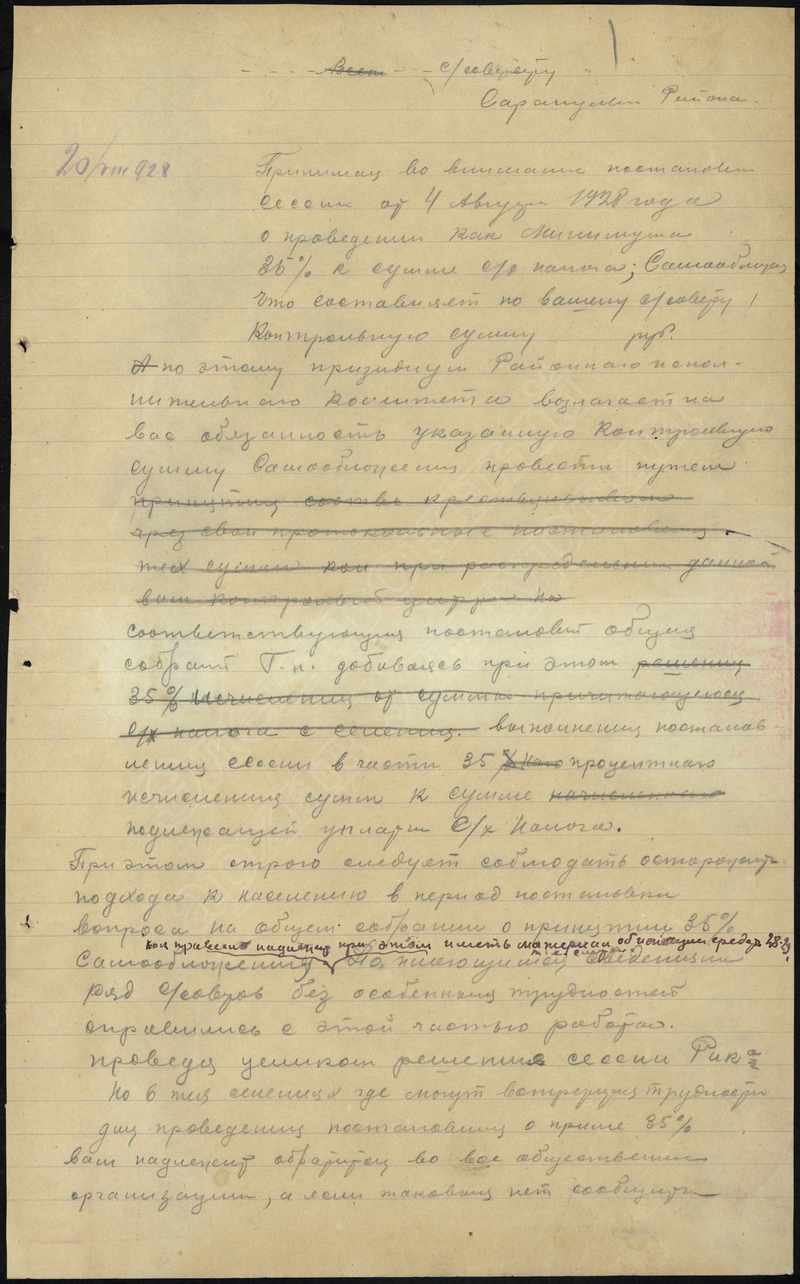 Всем с/совету
Сарапульск Района.
20/VIII 928
Принимая во внимание постановл
сессии от 4 Августа 1928 года
о проведении как Минимума
35% к сумме с/х налога; Самообложен,
что составляет по вашему с/совету
Контрольную сумму руб.
А по этому призидиум Районнаго испол-
нительнаго Комитета возлагает на
вас обязанность указанную Контрольную
сумму Самообложения провести путем
принятия
чрез свои протокольные постановления
тех сумм кои при распределении данной
вам контрольной цифры на
соответствующия постановл общих
собраний Т.п. добиваясь при этом решения
35% исчисления от суммы причитающегося
с/х налога с селения. выполнения постанов-
ления сессии в части 35 процентнаго
исчисления сумм к сумме начисленного
подлежащей уплате с/х Налога.
При этом строго следует соблюдать осторожность
подхода к населению в период постановки
вопроса на общем собрании о принятии 35%
как правело надлежит при этом иметь материал об использ средств 28-29
Самообложения, По имеющимся сведениям
ряд с/советов без особенных трудностей
справились с этой частью работы.
проведя целиком решения сессии Рик-а
Но в тех селениях где могут встретится трудности
для проведения постановления о приеме 35%
вам надлежит обратится во все общественные
организации, а если таковых нет сообщить